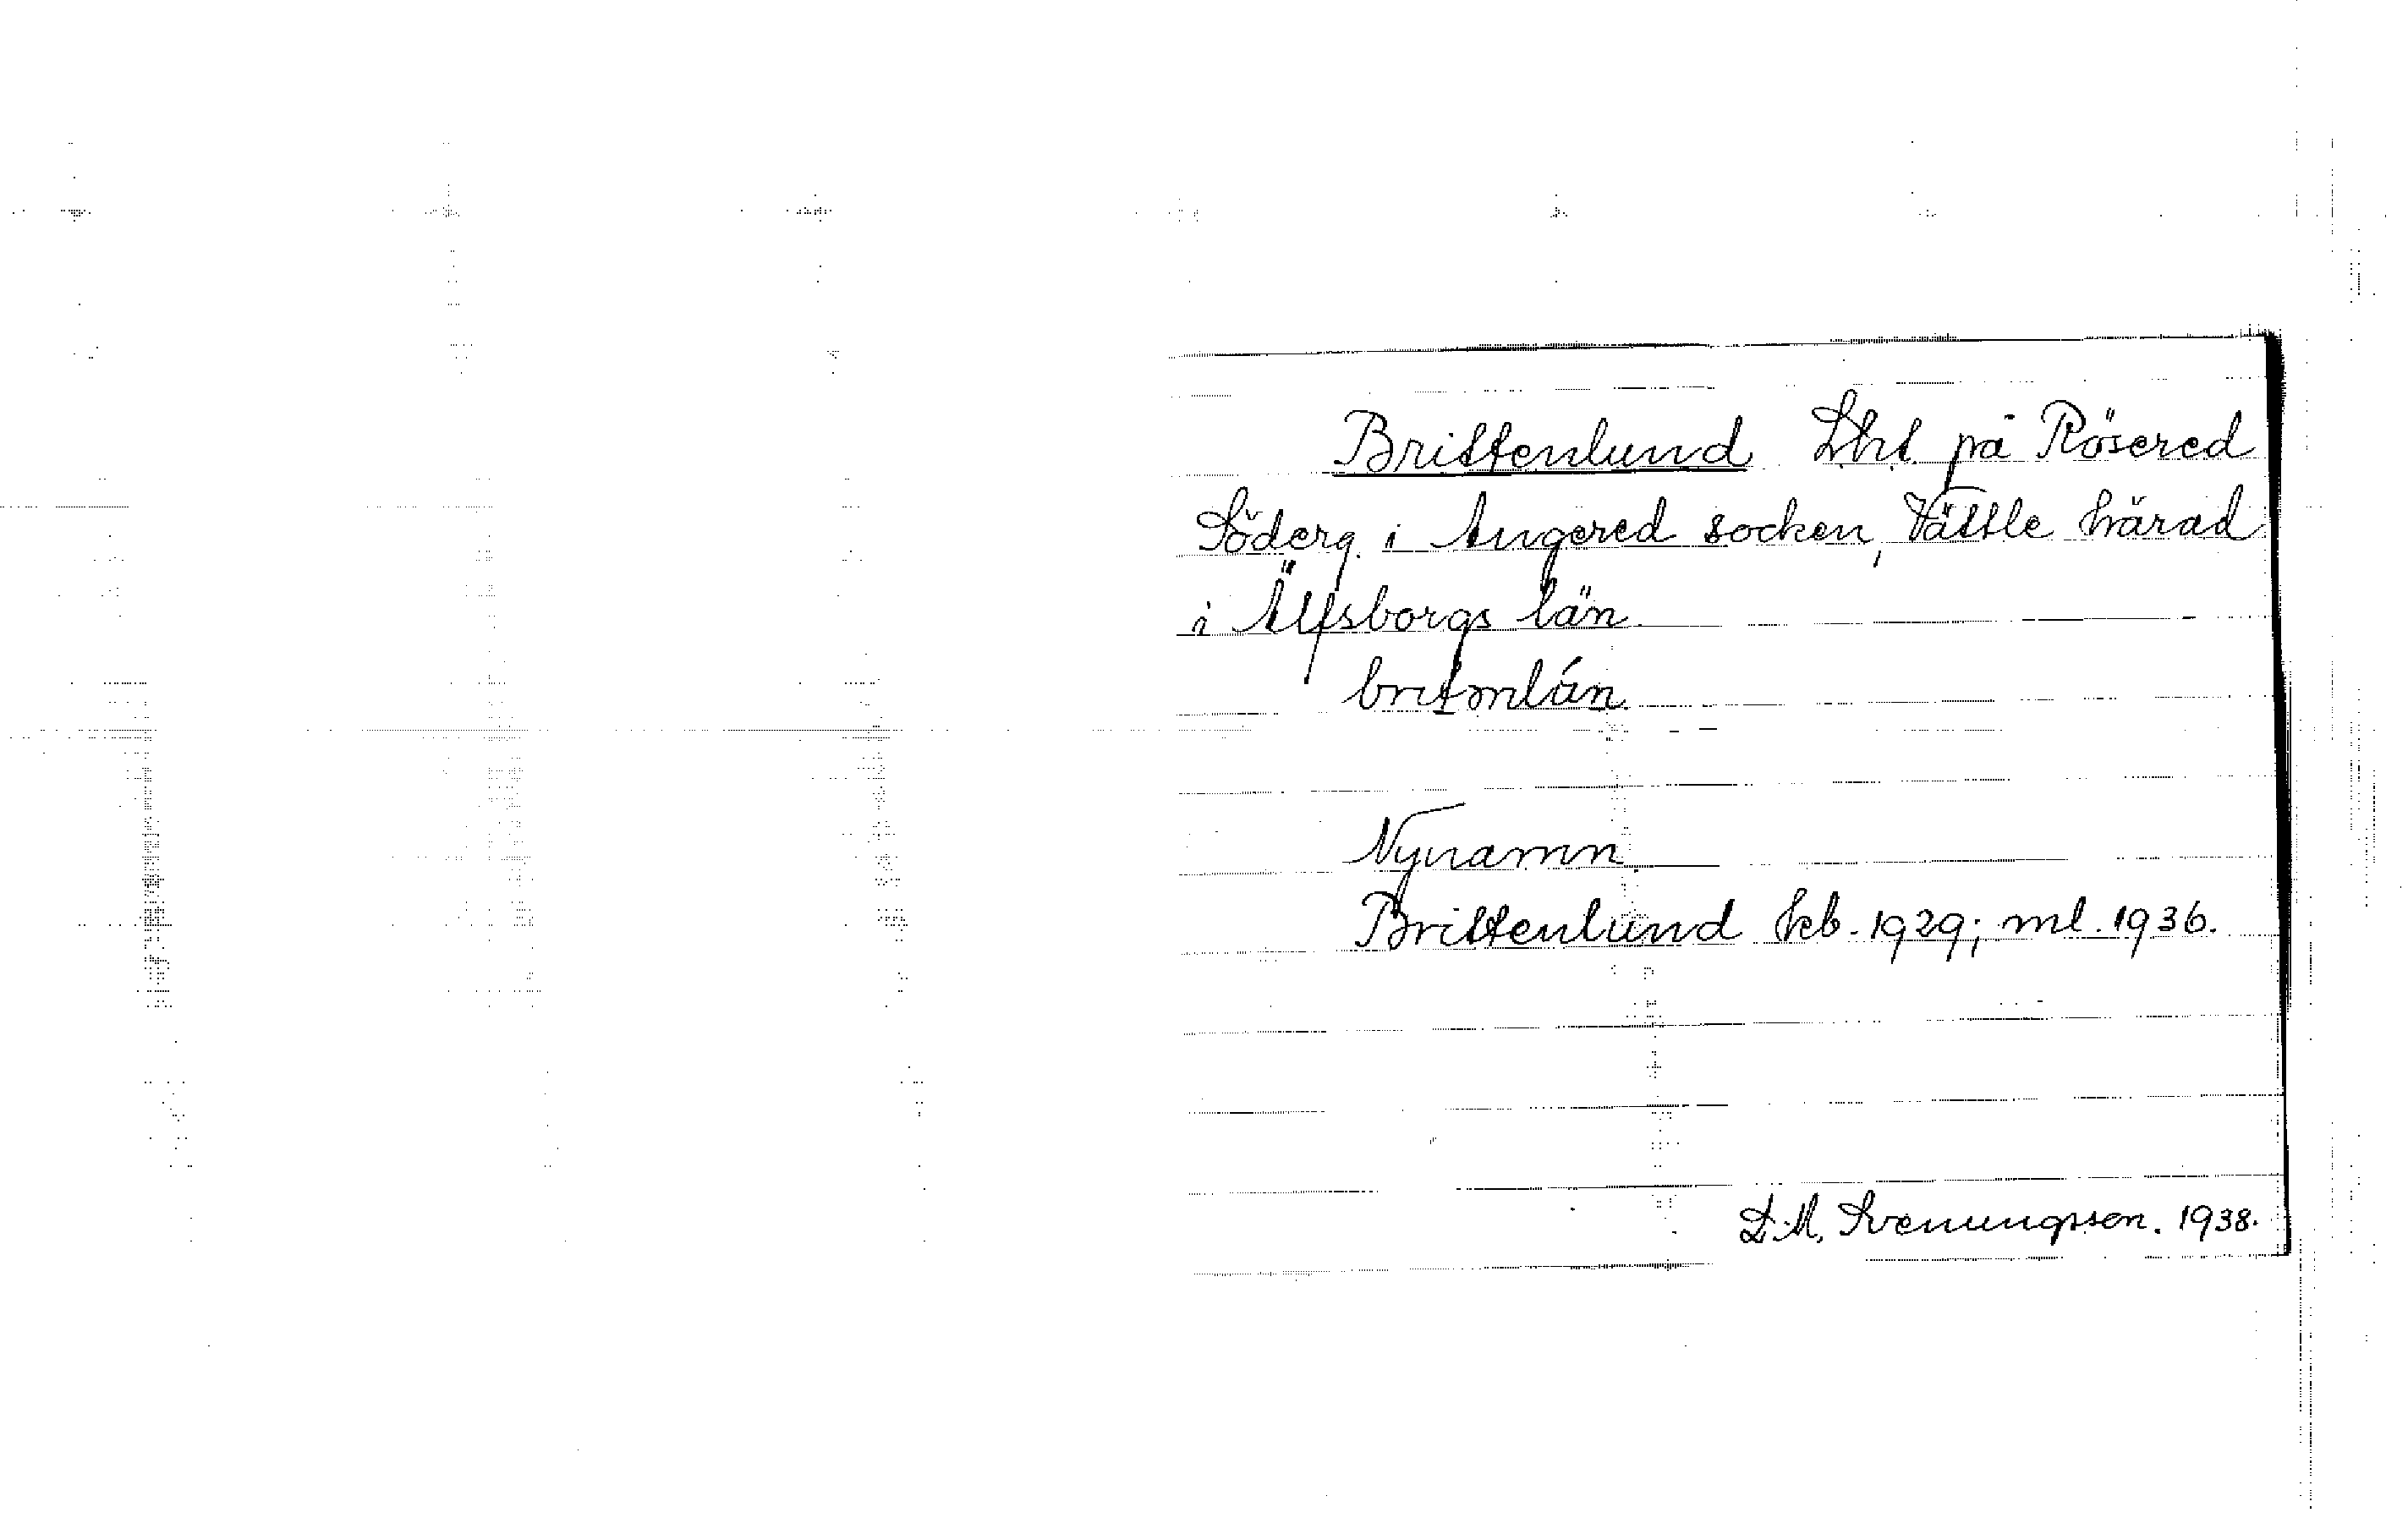 Brittenlund Lht. på Rösered
Söderg. i Angered socken, Vättle härad
i Älfsborgs län.
Nynamn
Brittenlund kb. 1929; ml. 1936.
L.M. Svenungsson. 1938.